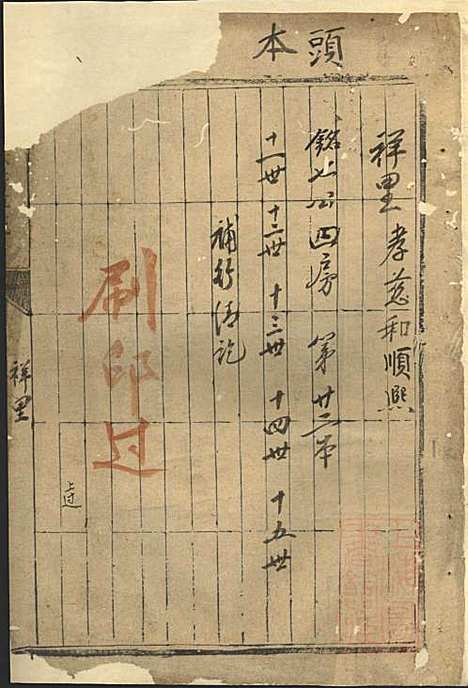 頭本
祥里孝慈和順熙
銘七公四房 第廿二本
十一世 十二世 十三世 十四世 十五世
補行清訖
刷印过
上过
祥里